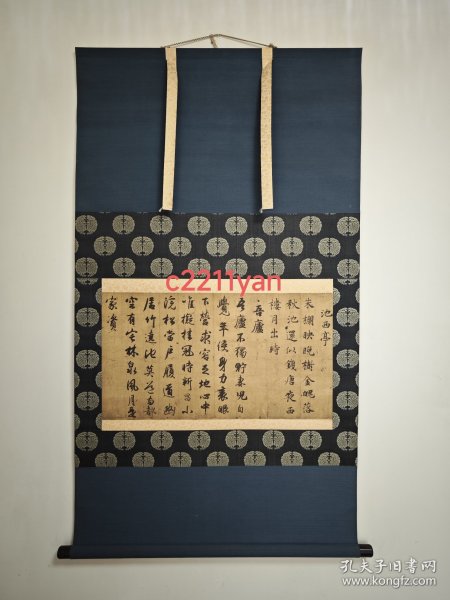 池西亭
朱欄映晚樹金魄落
秋池還似錢唐夜西
樓月出時
吾廬
吾廬不獨貯妻児自
覺年侵身力衰眼
下營求容足地心中
准擬挂冠時新昌小
院松當戶履道幽
居竹遶池莫道兩都
空有宅林泉風月是
家資
c2211yan
孔夫子旧书网
www.kongfz.com